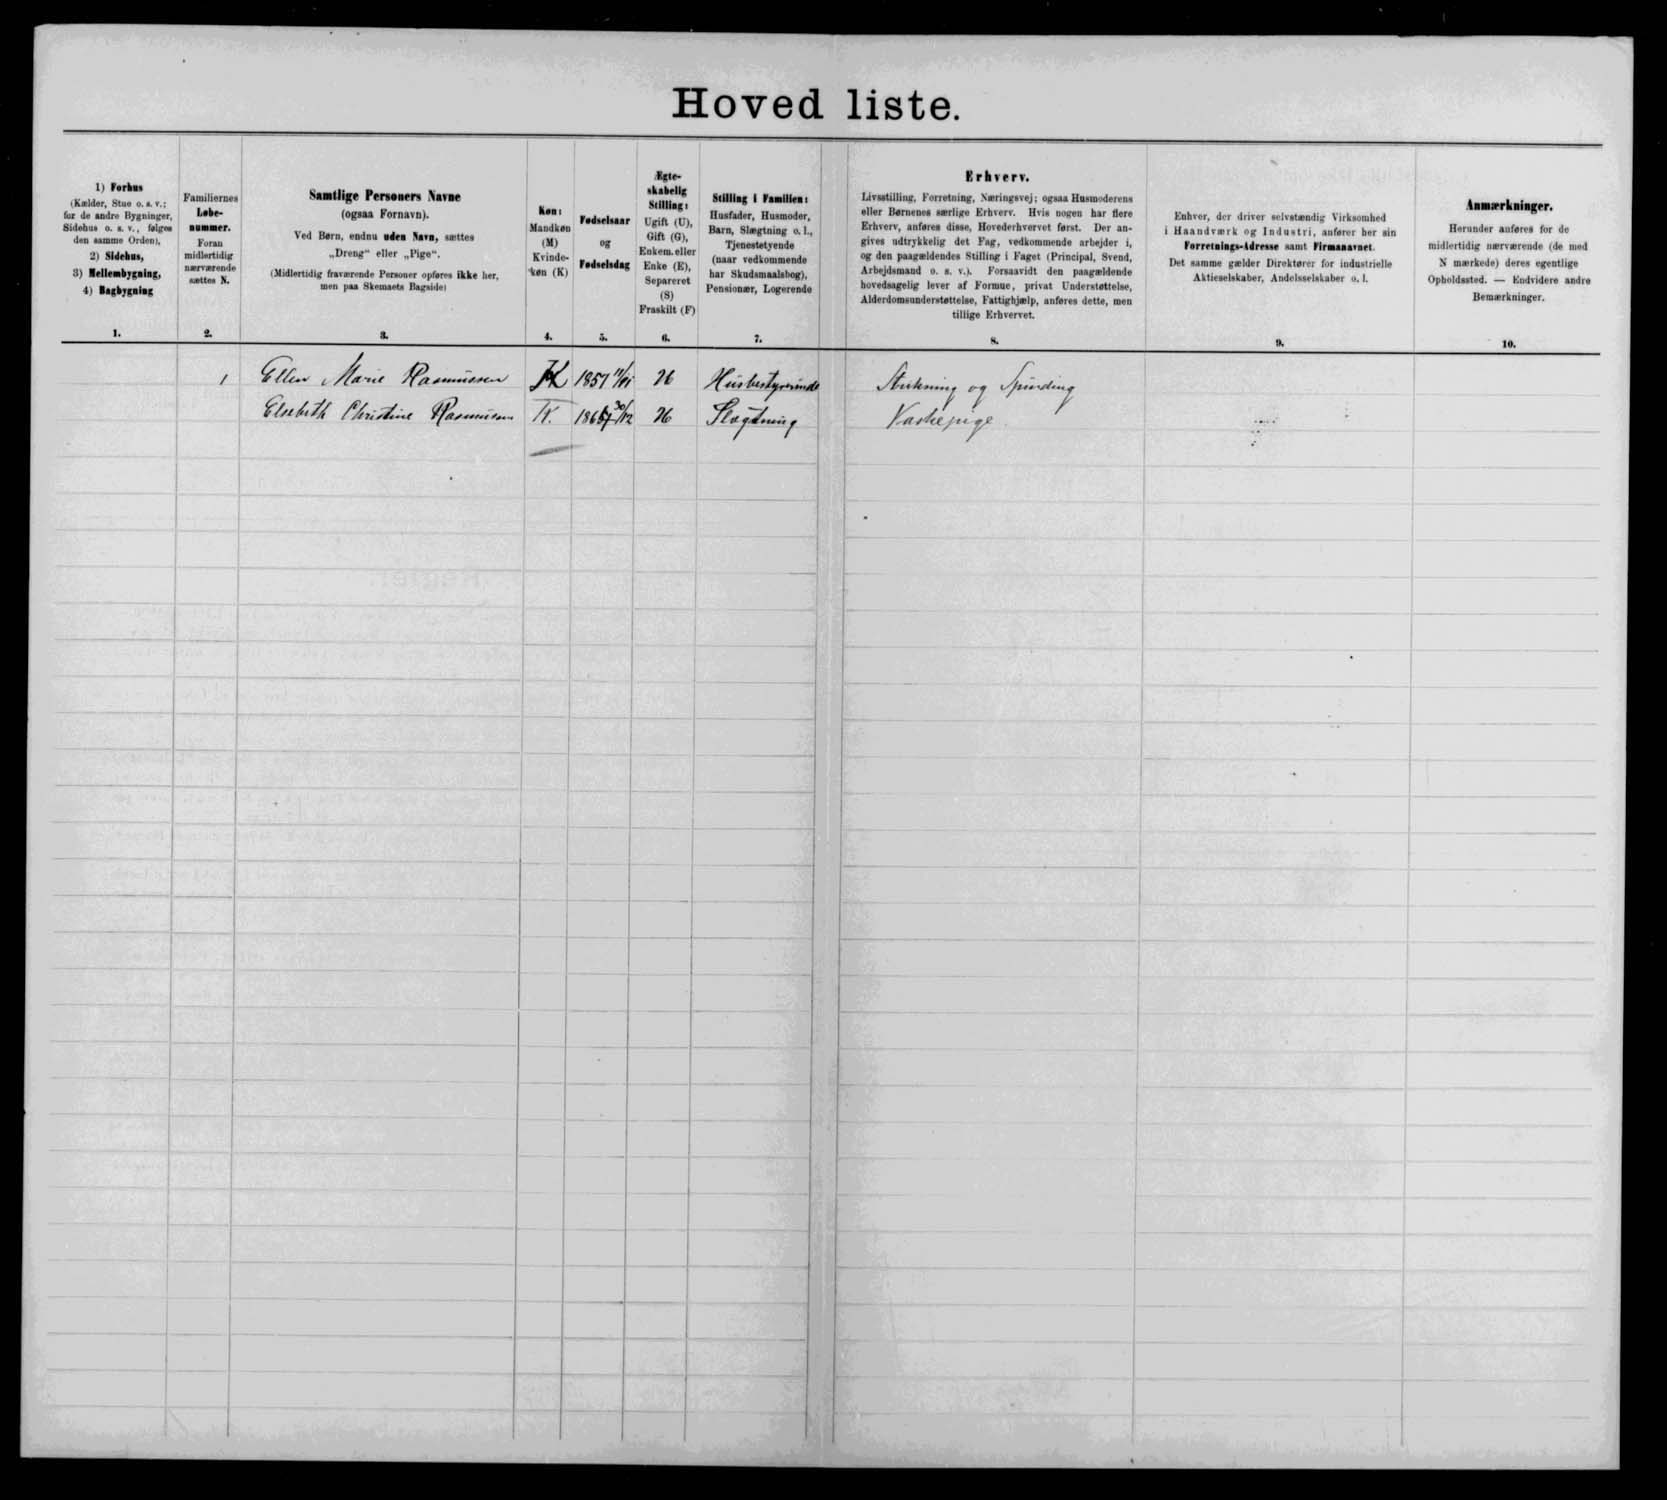 Hoved liste.
1) Forhus
(Kælder, Stue o. s. v.;
for de andre Bygninger,
Sidehus o. s. v., følges
den samme Orden),
2) Sidehus,
3) Mellembygning,
4) Bagbygning
1.
Familiernes
Løbe-
nummer.
Foran
midlertidig
nærværende
sættes N.
2.
Samtlige Personers Navne
(ogsaa Fornavn).
Ved Børn, endnu uden Navn, sættes
„Dreng“ eller „Pige“.
(Midlertidig fraværende Personer opføres ikke her,
men paa Skemaets Bagside)
3.
Køn:
Mandkøn
(M)
Kvinde-
køn (K)
4.
Fødselsaar
og
Fødselsdag
5.
Ægte-
skabelig
Stilling:
Ugift (U),
Gift (G),
Enkem. eller
Enke (E),
Separeret
(S)
Fraskilt (F)
6.
Stilling i Familien:
Husfader, Husmoder,
Barn, Slægtning o. l.,
Tjenestetyende
(naar vedkommende
har Skudsmaalsbog),
Pensionær, Logerende
7.
Erhverv.
Livsstilling, Forretning, Næringsvej; ogsaa Husmoderens
eller Børnenes særlige Erhverv. Hvis nogen har flere
Erhverv, anføres disse, Hovederhvervet først. Der an-
gives udtrykkelig det Fag, vedkommende arbejder i,
og den paagældendes Stilling i Faget (Principal, Svend,
Arbejdsmand o. s. v.). Forsaavidt den paagældende
hovedsagelig lever af Formue, privat Understøttelse,
Alderdomsunderstøttelse, Fattighjælp, anføres dette, men
tillige Erhvervet.
8.
Enhver, der driver selvstændig Virksomhed
i Haandværk og Industri, anfører her sin
Forretnings-Adresse samt Firmanavnet.
Det samme gælder Direktører for industrielle
Aktieselskaber, Andelsselskaber o. l.
9.
Anmærkninger.
Herunder anføres for de
midlertidig nærværende (de med
N mærkede) deres egentlige
Opholdssted. — Endvidere andre
Bemærkninger.
10.
1 Ellen Marie Rasmussen K 1857 U Husbestyrerinde og Spinding
Elsebeth Christine Rasmussen K. 30/12 U Slægtning Vaskepige